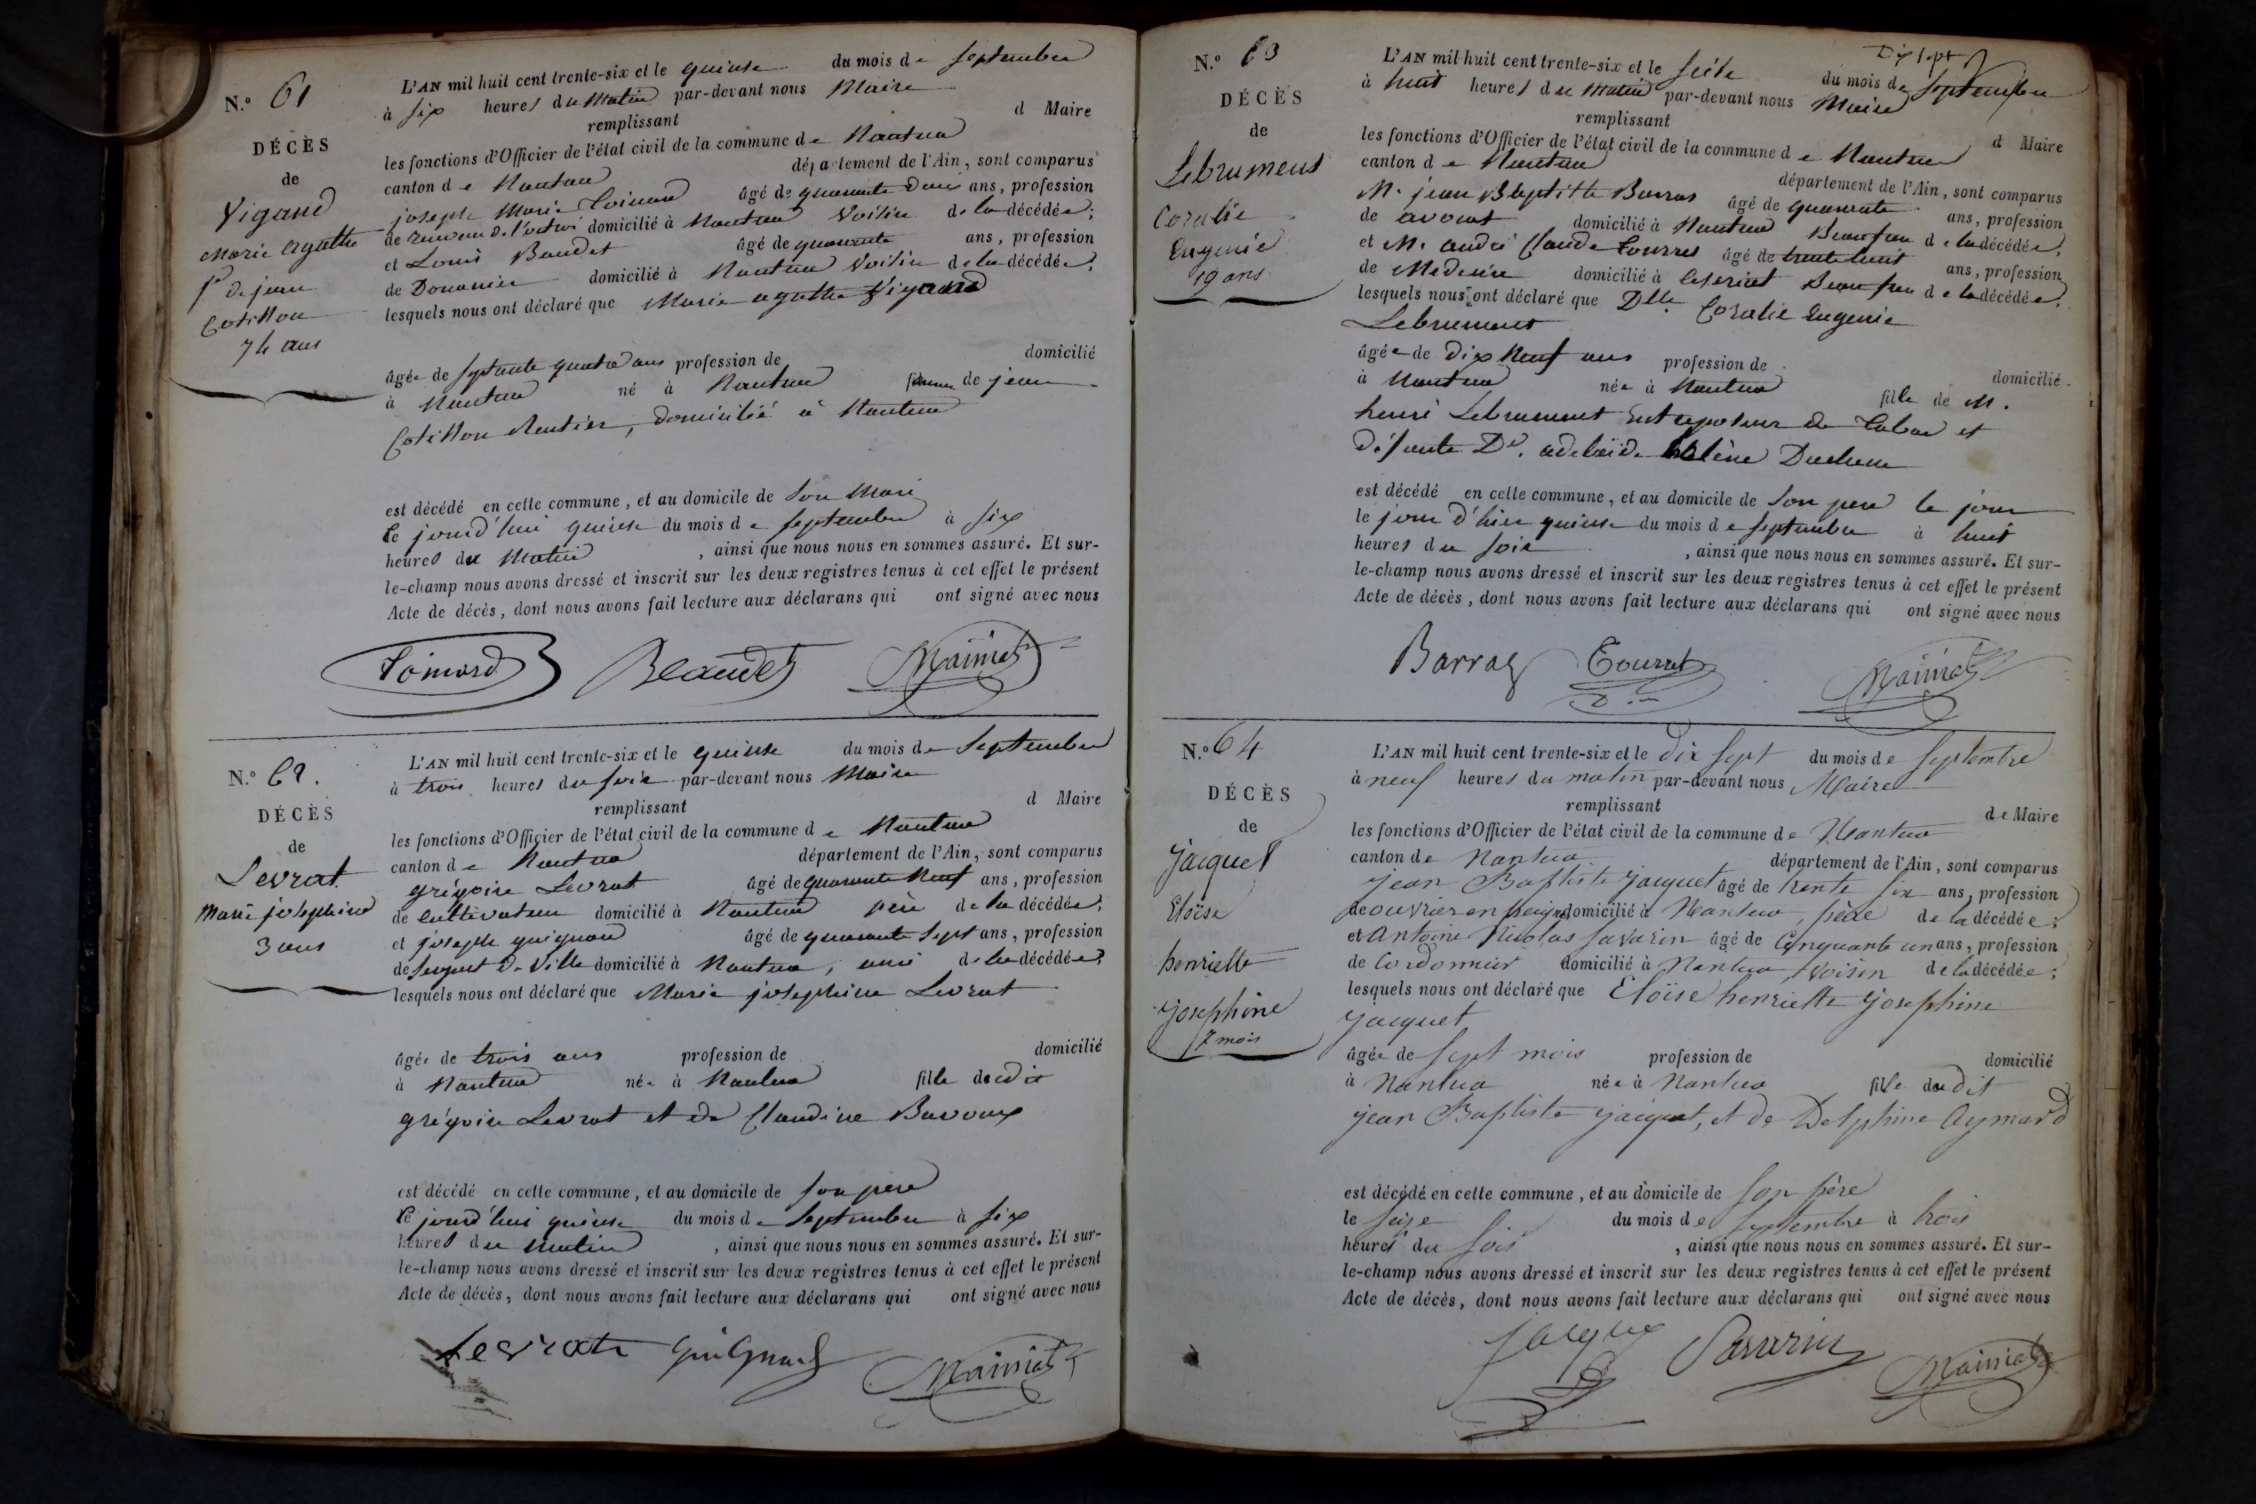 N.º 61
DÉCÈS
de
Vigand
Marie Agathe
fe de jean
Cotillon
74 ans
L'AN mil huit cent trente-six et le quinse du mois de septembre
à six heures du matin par-devant nous Maire
remplissant d Maire
les fonctions d'Officier de l'état civil de la commune de Nantua
canton de Nantua département de l'Ain, sont comparus
joseph Marie âgé de quarante deux ans, profession
de domicilié à Nantua voisin de la décédée;
et Louis Baudet âgé de quarante ans, profession
de Douanier domicilié à Nantua voisin de la décédée;
lesquels nous ont déclaré que Marie agathe Vigand
âgée de septante quatre ans profession de domicilié
à Nantua né à Nantua femme de jean
Cotillon Rentier, domicilié à Nantua
est décédé en cette commune, et au domicile de son mari
le jourd'hui quinse du mois de septembre à six
heures du matin, ainsi que nous nous en sommes assuré. Et sur-
le-champ nous avons dressé et inscrit sur les deux registres tenus à cet effet le présent
Acte de décès, dont nous avons fait lecture aux déclarans qui ont signé avec nous
Beaudet
N.º 62.
DÉCÈS
de
Levrat
Marie josephine
3 ans
L'AN mil huit cent trente-six et le quinse du mois de septembre
à trois heures du soir par-devant nous Maire
remplissant d Maire
les fonctions d'Officier de l'état civil de la commune de Nantua
canton de Nantua département de l'Ain, sont comparus
grégoire Levrat âgé de quarante neuf ans, profession
de cultivateur domicilié à Nantua père de la décédée;
et joseph guignard âgé de quarante sept ans, profession
de sergent de Ville domicilié à Nantua, ami de la décédée;
lesquels nous ont déclaré que Marie josephine Levrat
âgée de trois ans profession de domicilié
à Nantua née à Nantua fille dudit
grégoire Levrat et de Claudine Bavoux
est décédé en cette commune, et au domicile de son père
le jourd'hui quinse du mois de septembre à six
heures du matin, ainsi que nous nous en sommes assuré. Et sur-
le-champ nous avons dressé et inscrit sur les deux registres tenus à cet effet le présent
Acte de décès, dont nous avons fait lecture aux déclarans qui ont signé avec nous
Levrat guignard
N.º 63
DÉCÈS
de
Lebrument
Coralie
Eugenie
19 ans
Dix sept
L'AN mil huit cent trente-six et le seise du mois de septembre
à huit heures du matin par-devant nous Maire
remplissant d Maire
les fonctions d'Officier de l'état civil de la commune de Nantua
canton de Nantua département de l'Ain, sont comparus
M. jean Baptiste Barras âgé de quarante ans, profession
de avocat domicilié à Nantua Beaufrere de la décédée;
et M. andré Claude Tourret âgé de trente huit ans, profession
de Medecin domicilié à Beaufrere de la décédée;
lesquels nous ont déclaré que Dlle. Coralie Eugenie
Lebrument
âgée de dix neuf ans profession de domicilié
à Nantua née à Nantua fille de M.
henri Lebrument Entreposeur de Tabac et
défunte De. adelaïde hélène
est décédé en cette commune, et au domicile de son pere le jour
le jour d'hier quinse du mois de septembre à huit
heures du soir, ainsi que nous nous en sommes assuré. Et sur-
le-champ nous avons dressé et inscrit sur les deux registres tenus à cet effet le présent
Acte de décès, dont nous avons fait lecture aux déclarans qui ont signé avec nous
Barras Tourret
N.º 64
DÉCÈS
de
Jacquet
Eloïse
henriette
josephine
7 mois
L'AN mil huit cent trente-six et le dix sept du mois de septembre
à neuf heures du matin par-devant nous Maire
remplissant de Maire
les fonctions d'Officier de l'état civil de la commune de Nantua
canton de Nantua département de l'Ain, sont comparus
jean Baptiste jacquet âgé de trente six ans, profession
de ouvrier en peigne domicilié à Nantua père de la décédée;
et antoine Nicolas savarin âgé de Cinquante un ans, profession
de Cordonnier domicilié à Nantua, voisin de la décédée;
lesquels nous ont déclaré que Eloïse henriette josephine
jacquet
âgée de sept mois profession de domicilié
à Nantua née à Nantua fille dudit
jean Baptiste jacquet, et de Delphine Aymard
est décédé en cette commune, et au domicile de son père
le seize du mois de septembre à trois
heures du soir, ainsi que nous nous en sommes assuré. Et sur-
le-champ nous avons dressé et inscrit sur les deux registres tenus à cet effet le présent
Acte de décès, dont nous avons fait lecture aux déclarans qui ont signé avec nous
Savarin